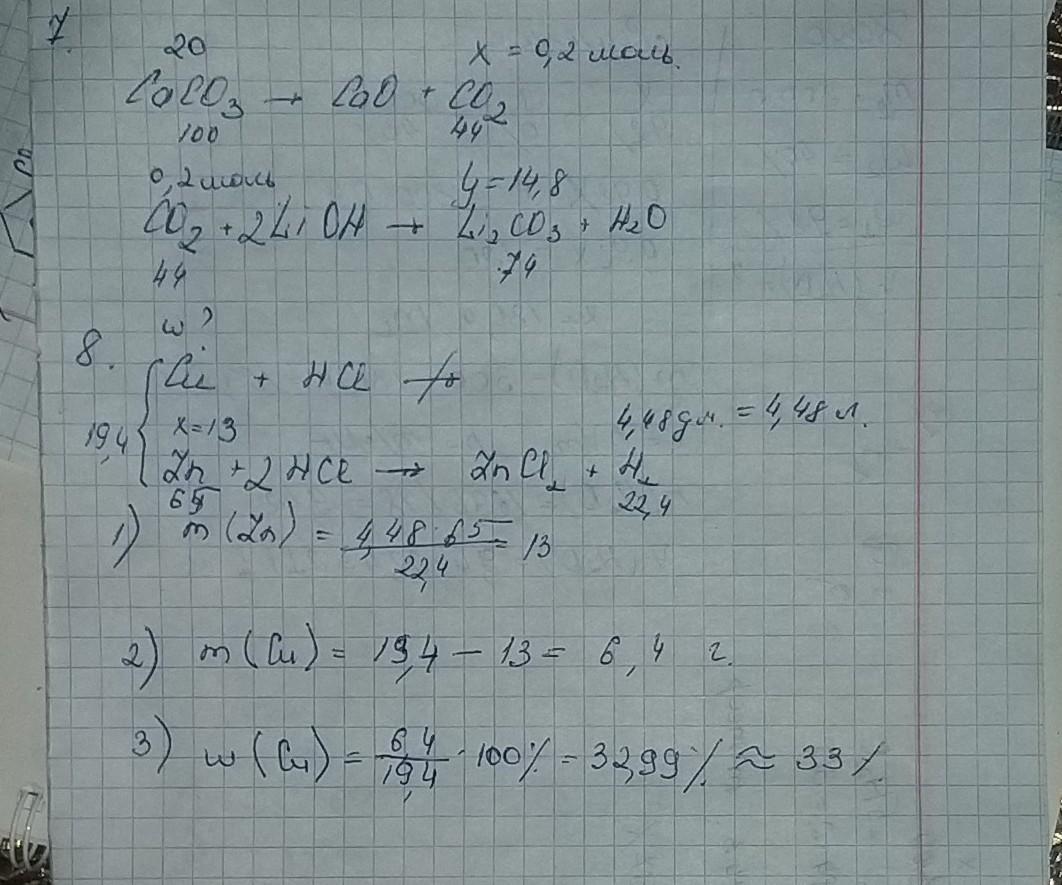 7.
20 x = 0,2 моль.
CaCO₃ → CaO + CO₂
100 44
0,2 моль y = 14,8
CO₂ + 2LiOH → Li₂CO₃ + H₂O
44 74
8. w?
Cu + HCl ↛
19,4 x = 13 4,48 дм. = 4,48 л.
Zn + 2HCl → ZnCl₂ + H₂
65 22,4
1) m (Zn) = 4,48 · 65 / 22,4 = 13
2) m (Cu) = 19,4 − 13 = 6,4 г.
3) w (Cu) = 6,4 / 19,4 · 100% = 32,99% ≈ 33%